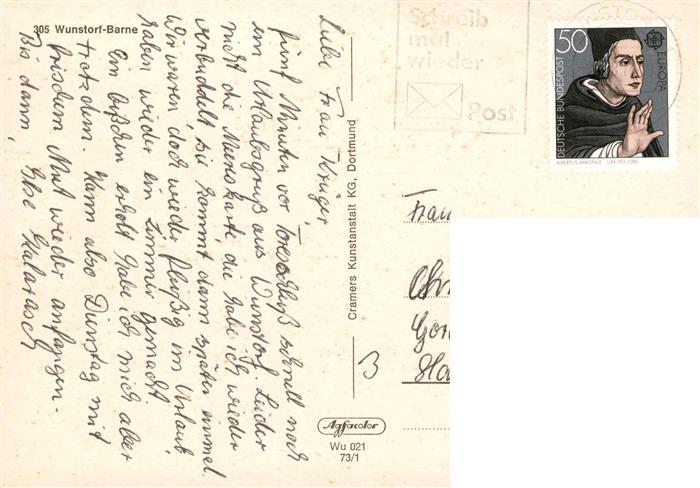 305 Wunstorf-Barne
Liebe Frau Krüger,
fünf Minuten vor Toresschluß schnell noch
ein Urlaubsgruß aus Wunstorf. Leider
nicht die Meerskarte, die habe ich wieder
verbuddelt, sie kommt dann später einmal.
Wir waren doch wieder fleißig im Urlaub,
haben wieder ein Zimmer gemacht.
Ein bißchen erholt habe ich mich aber
trotzdem. Kann also Dienstag mit
frischem Mut wieder anfangen.
Bis dann,
Cramers Kunstanstalt KG, Dortmund
Agfacolor
Wu 021
73/1
Schreib
mal
wieder
Post
50
DEUTSCHE BUNDESPOST
EUROPA
ALBERTUS MAGNUS · UM 1193-1280
Frau
3